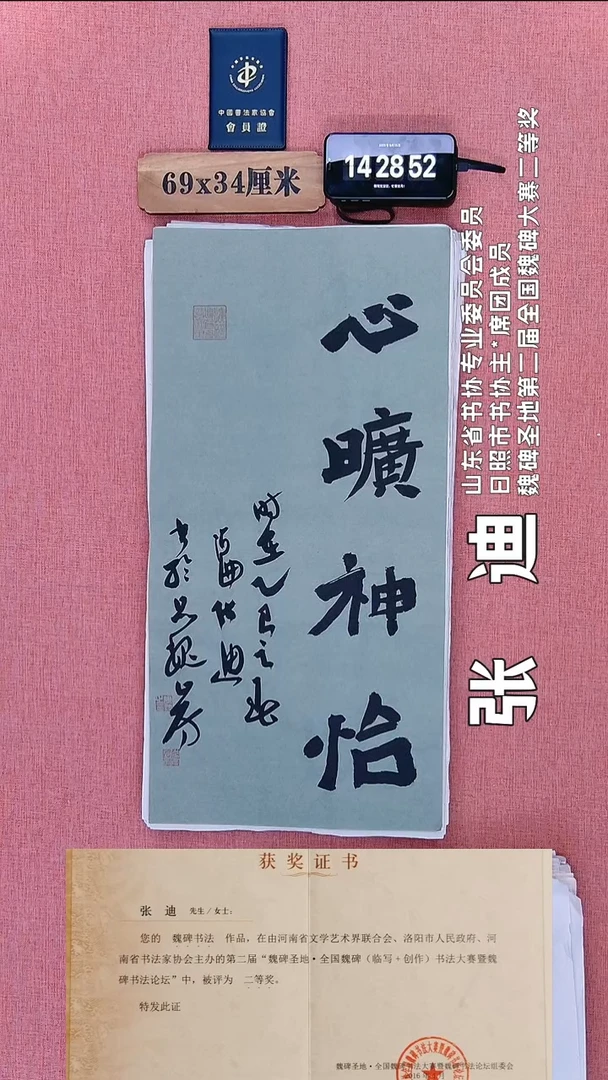 中國書法家協會
會員證
69x34厘米
14 28 52
心曠神怡
时在乙巳之春
张迪
山东省书协专业委员会委员
日照市书协主*席团成员
魏碑圣地第二届全国魏碑大赛二等奖
张 迪
获奖证书
张 迪 先生／女士：
您的 魏碑书法 作品，在由河南省文学艺术界联合会、洛阳市人民政府、河
南省书法家协会主办的第二届“魏碑圣地·全国魏碑（临写+创作）书法大赛暨魏
碑书法论坛”中，被评为 二等奖。
特发此证
魏碑圣地·全国魏碑书法大赛暨魏碑书法论坛组委会